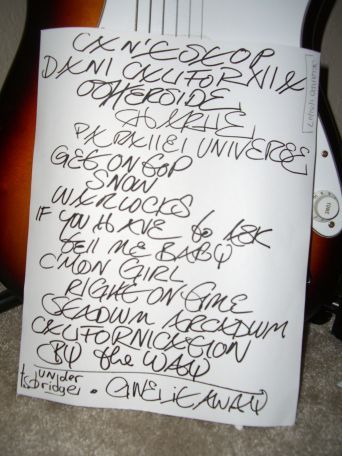 CAN'T STOP
DANI CALIFORNIA
OTHERSIDE
CHARLIE
PARALLEL UNIVERSE
GET ON TOP
SNOW
WARLOCKS
IF YOU HAVE to ASK
TELL ME BABY
C'MON GIRL
RIGHT ON TIME
STADIUM ARCADIUM
CALIFORNICATION
BY the WAY
UNder
the bridge . GIVE IT AWAY